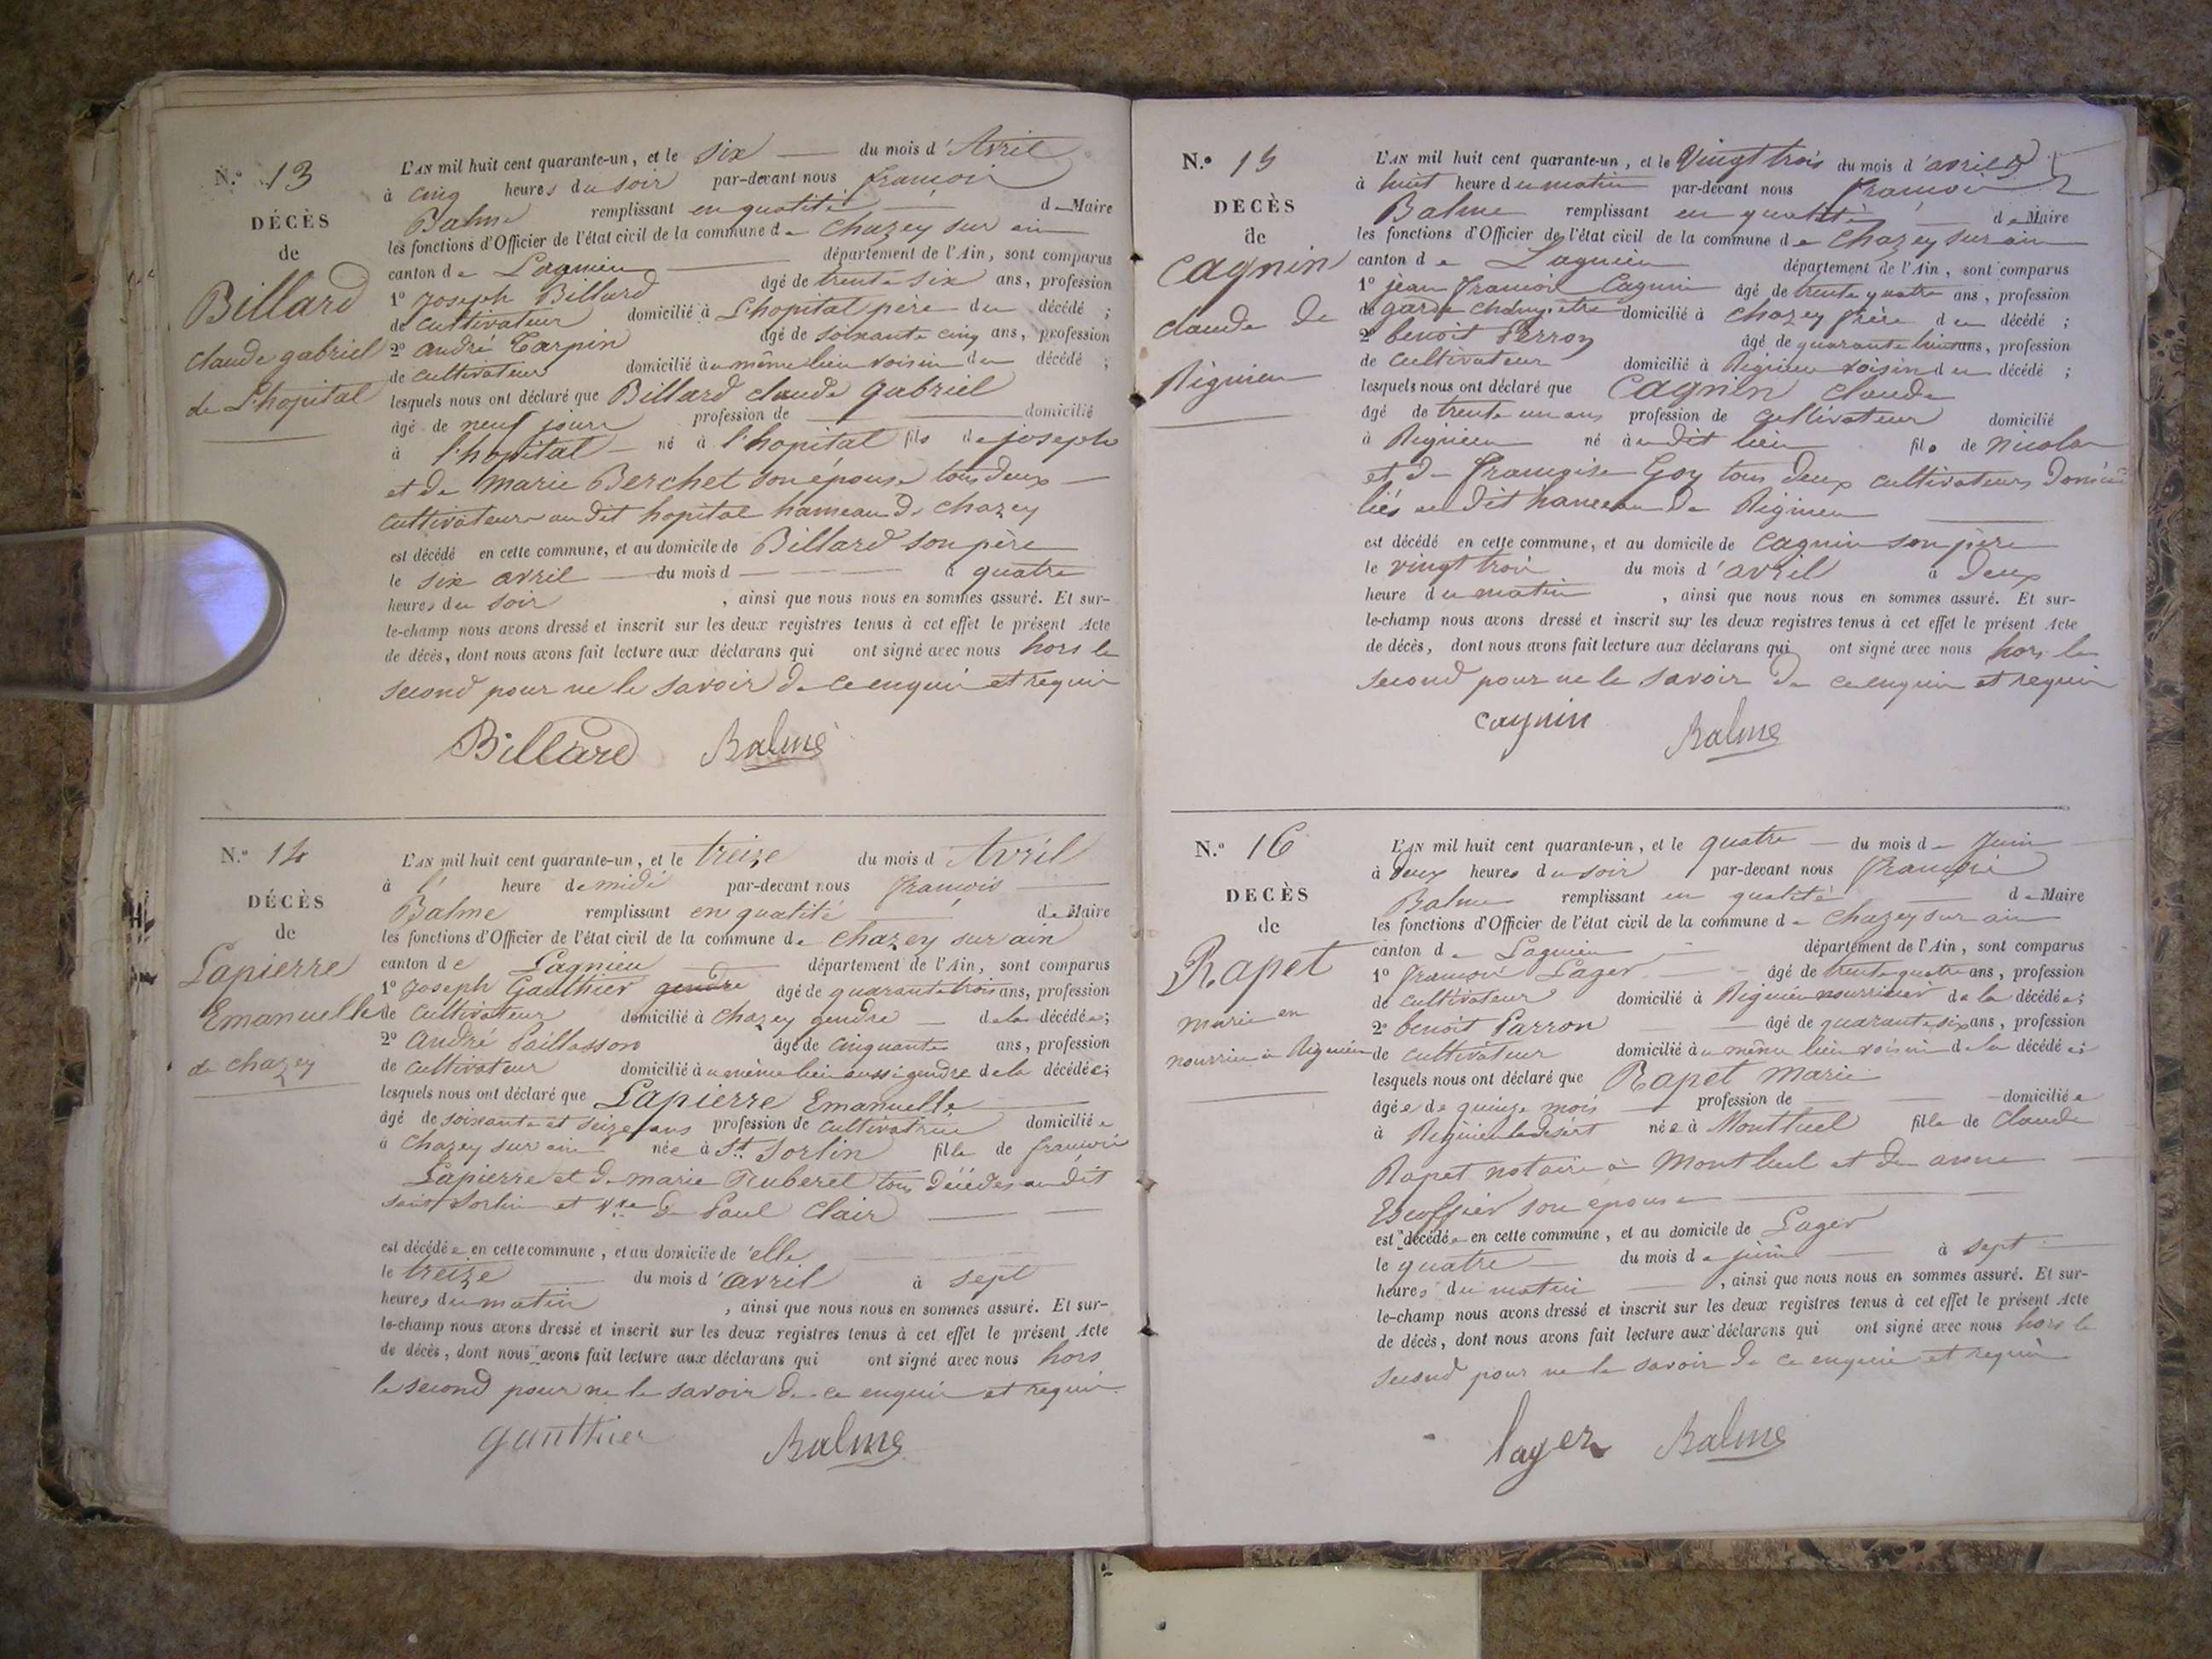 N.o 13
DÉCÈS
de
Billard
claude gabriel
de L'hopital
L'AN mil huit cent quarante-un, et le six du mois d'Avril
à cinq heures du soir par-devant nous françois
Balme remplissant en qualité de Maire
les fonctions d'Officier de l'état civil de la commune de Chazey sur ain
canton de Lagnieu département de l'Ain, sont comparus
1o Joseph Billard âgé de trente six ans, profession
de cultivateur domicilié à L'hopital père du décédé ;
2o andré Carpin âgé de soixante cinq ans, profession
de cultivateur domicilié au même lieu voisin du décédé ;
lesquels nous ont déclaré que Billard claude gabriel
âgé de neuf jours profession de domicilié
à l'hopital né à l'hopital fils de joseph
et de marie Berchet son épouse tous deux
cultivateurs au dit hopital hameau de chazey
est décédé en cette commune, et au domicile de Billard son père
le six avril du mois d à quatre
heures du soir , ainsi que nous nous en sommes assuré. Et sur-
le-champ nous avons dressé et inscrit sur les deux registres tenus à cet effet le présent Acte
de décès, dont nous avons fait lecture aux déclarans qui ont signé avec nous hors le
second pour ne le savoir de ce enquis et requis
Billard Balme
N.o 14
DÉCÈS
de
Lapierre
Emanuelle
de chazey
L'AN mil huit cent quarante-un, et le treize du mois d Avril
à l' heure de midi par-devant nous françois
Balme remplissant en qualité de Maire
les fonctions d'Officier de l'état civil de la commune de chazey sur ain
canton de Lagnieu département de l'Ain, sont comparus
1o Joseph Gauthier gendre âgé de quarante trois ans, profession
de cultivateur domicilié à chazey gendre de la décédée;
2o andré Paillasson âgé de cinquante ans, profession
de cultivateur domicilié au même lieu aussi gendre de la décédée;
lesquels nous ont déclaré que Lapierre Emanuelle
âgé de soixante et seize ans profession de cultivatrice domiciliée
à Chazey sur ain née à St. Sorlin fille de françois
Lapierre et de marie Ruberel tous décédés au dit
saint Sorlin et vve de Paul Clair
est décédée en cette commune, et au domicile de elle
le treize du mois d'avril à sept
heures du matin , ainsi que nous nous en sommes assuré. Et sur-
le-champ nous avons dressé et inscrit sur les deux registres tenus à cet effet le présent Acte
de décès, dont nous avons fait lecture aux déclarans qui ont signé avec nous hors
le second pour ne le savoir de ce enquis et requis
gauthier Balme
N.o 15
DÉCÈS
de
Cagnin
claude de
Rignieu
L'AN mil huit cent quarante-un, et le Vingt trois du mois d'avril
à huit heure du matin par-devant nous françois
Balme remplissant en qualité de Maire
les fonctions d'Officier de l'état civil de la commune de Chazey sur ain
canton de Lagnieu département de l'Ain, sont comparus
1o jean francois Cagnin âgé de trente quatre ans, profession
de garde champêtre domicilié à chazey frère du décédé ;
2o benoît Perron âgé de quarante huit ans, profession
de cultivateur domicilié à Rignieu voisin du décédé ;
lesquels nous ont déclaré que Cagnin Claude
âgé de trente un ans profession de cultivateur domicilié
à Rignieu né au dit lieu fils de Nicolas
et de françoise Goy tous deux cultivateurs domici
liés au dit hameau de Rignieu
est décédé en cette commune, et au domicile de Cagnin son père
le vingt trois du mois d'avril à deux
heure du matin , ainsi que nous nous en sommes assuré. Et sur-
le-champ nous avons dressé et inscrit sur les deux registres tenus à cet effet le présent Acte
de décès, dont nous avons fait lecture aux déclarans qui ont signé avec nous hors le
second pour ne le savoir de ce enquis et requis
cagnin Balme
N.o 16
DÉCÈS
de
Rapet
marie en
nourrice à Rignieu
L'AN mil huit cent quarante-un, et le quatre du mois de Juin
à deux heures du soir par-devant nous françois
Balme remplissant en qualité de Maire
les fonctions d'Officier de l'état civil de la commune de Chazey sur ain
canton de Lagnieu département de l'Ain, sont comparus
1o françois Lager âgé de trente quatre ans, profession
de cultivateur domicilié à Rignieu nourricier de la décédée;
2o benoit Parron âgé de quarante six ans, profession
de cultivateur domicilié au même lieu voisin de la décédée;
lesquels nous ont déclaré que Rapet marie
âgée de quinze mois profession de domiciliée
à Rignieu le désert née à Montluel fille de Claude
Rapet notaire à Montluel et de anne
Escoffier son epouse
est décédée en cette commune, et au domicile de Lager
le quatre du mois de juin à sept
heures du matin , ainsi que nous nous en sommes assuré. Et sur-
le-champ nous avons dressé et inscrit sur les deux registres tenus à cet effet le présent Acte
de décès, dont nous avons fait lecture aux déclarans qui ont signé avec nous hors le
second pour ne le savoir de ce enquis et requis
lager Balme